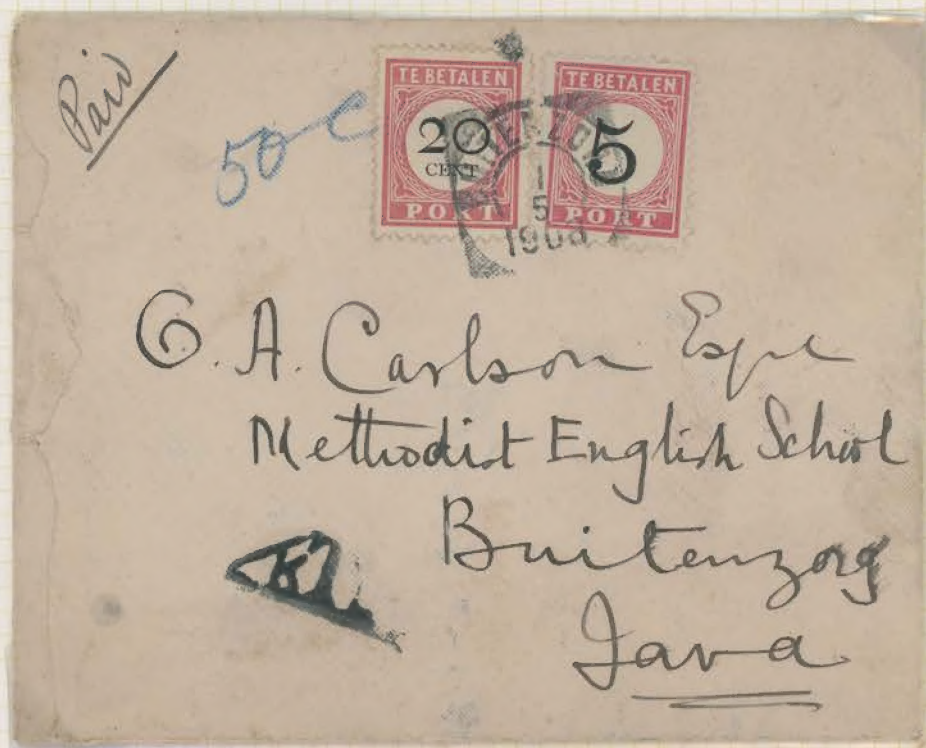 Paid
50 c
TE BETALEN
20
CENT
PORT
TE BETALEN
5
PORT
1
5
190
G. A. Carlson Esqre
Methodist English School
Buitenzorg
Java